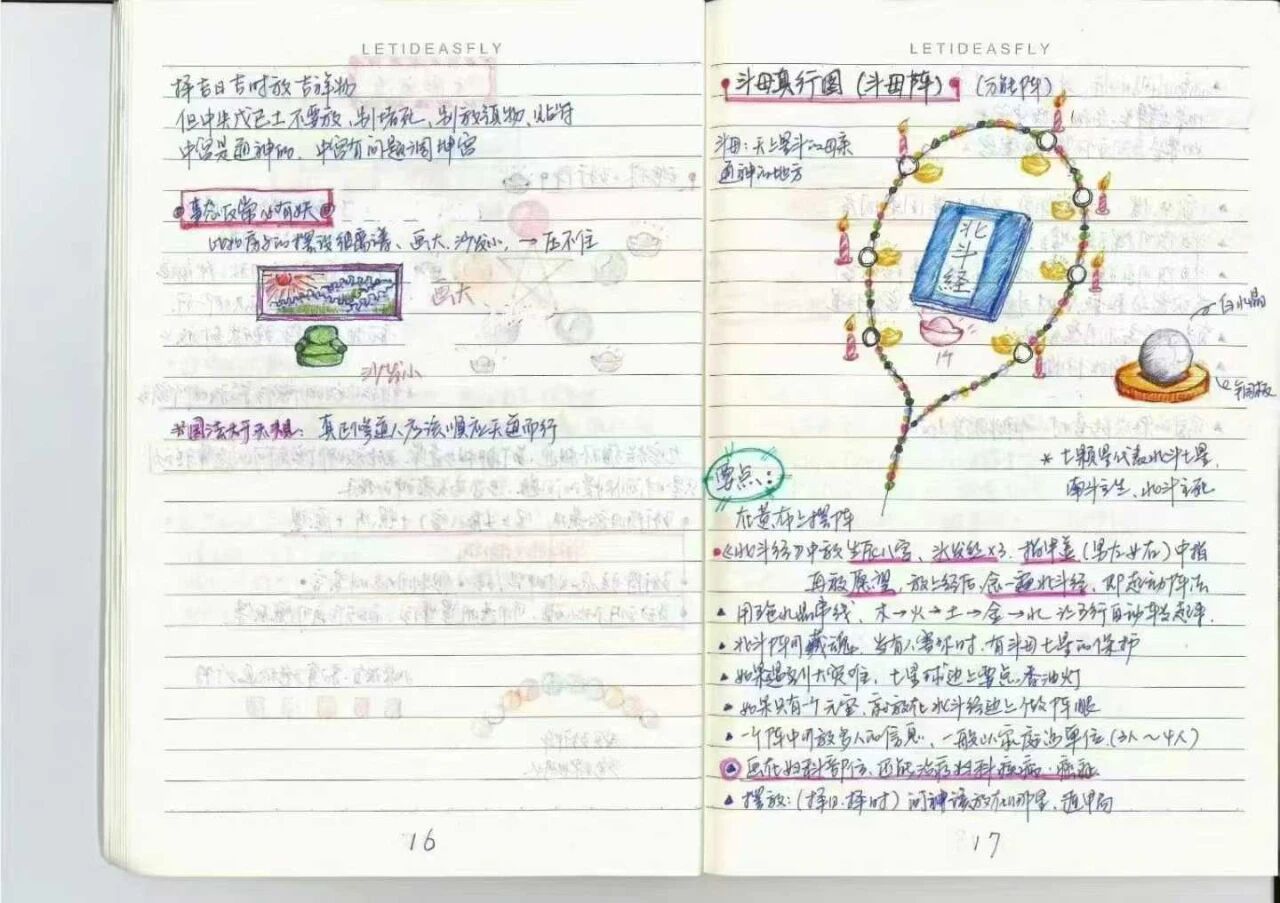 LETIDEASFLY
择吉日吉时放吉祥物
但中央戊己土不要放,别堵死,别放镇物、贴符
中宫是通神的,中宫有问题调坤宫
事态反常必有妖
比如房子的摆设很离谱、画大、沙发小,→压不住
画大
沙发小
国法大于天规:真正修道人应该顺应天道而行
16
LETIDEASFLY
斗母真行图(斗母阵)(万能阵)
斗母:天上星斗的母亲
通神的地方
北斗经
1个
白水晶
铜板
* 七颗星代表北斗七星,
南斗主生、北斗主死
要点:
在黄布上摆阵
《北斗经》中放生辰八字、头发丝×3、指甲盖(男左女右)中指
再放愿望,放上经后,念一遍北斗经,即起动阵法
用五色水晶串线,木→火→土→金→水,让五行自动转起来.
北斗阵可藏魂,当有人害你时,有斗母七星的保护
如果遇到大灾难,七星球边上要点香油灯
如果只有一个元宝,就放在北斗经边上做阵眼
一个阵中可放多人的信息,一般以家庭为单位.(3人~4人)
画在妇科部位,还能治疗妇科疾病、癌症.
摆放:(择日.择时)问神该放在哪里,
17